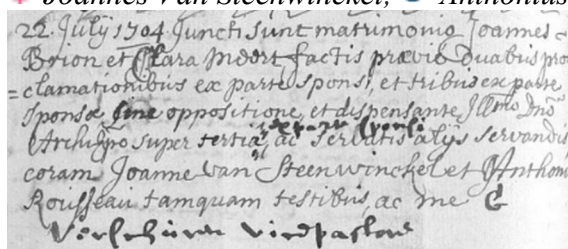 Joannes Van Steenwinckel, Anthonius
22. July 1704 Juncti sunt matrimonio Joannes
Brion et Clara Indert factis praeviè duabus pro
=clamationibus ex parte sponsi, et tribus ex parte
sponsae sine oppositione, et dispensante Illmo Dno
Archiepo super tertiâ ex parte sponsi ac servatis alijs servandis
coram Joanne van Steenwinckel et Anthon
Rousseau tamquam testibus, ac me
Verschüren vicepastore